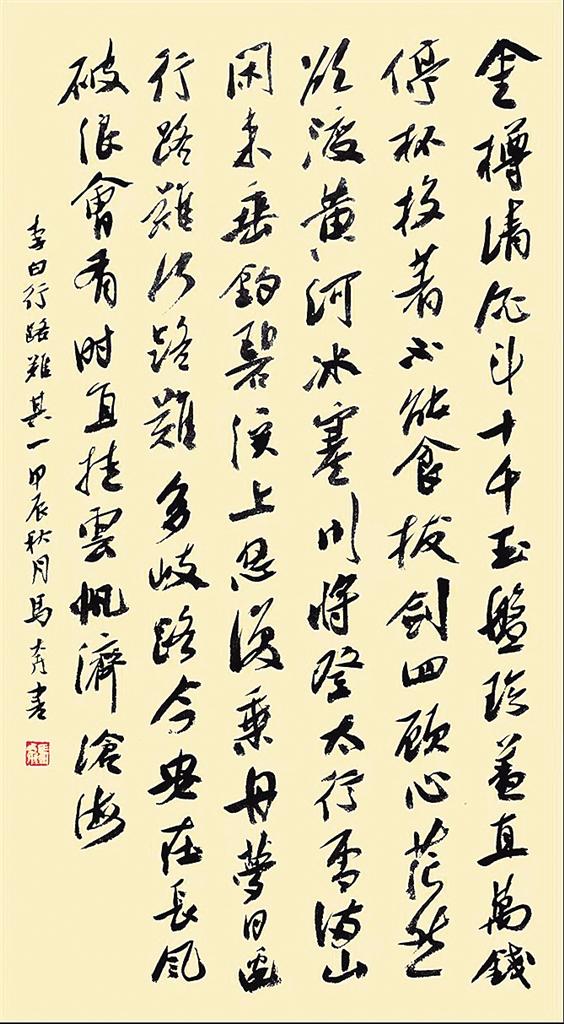 金樽清酒斗十千玉盤珍羞直萬錢
停杯投著不能食拔劍四顧心茫然
欲渡黄河冰塞川將登太行雪满山
閑来垂釣碧溪上忽復乘舟夢日邊
行路難行路難多岐路今安在長風
破浪會有时直挂雲帆濟滄海
李白行路難其一甲辰秋月馬書